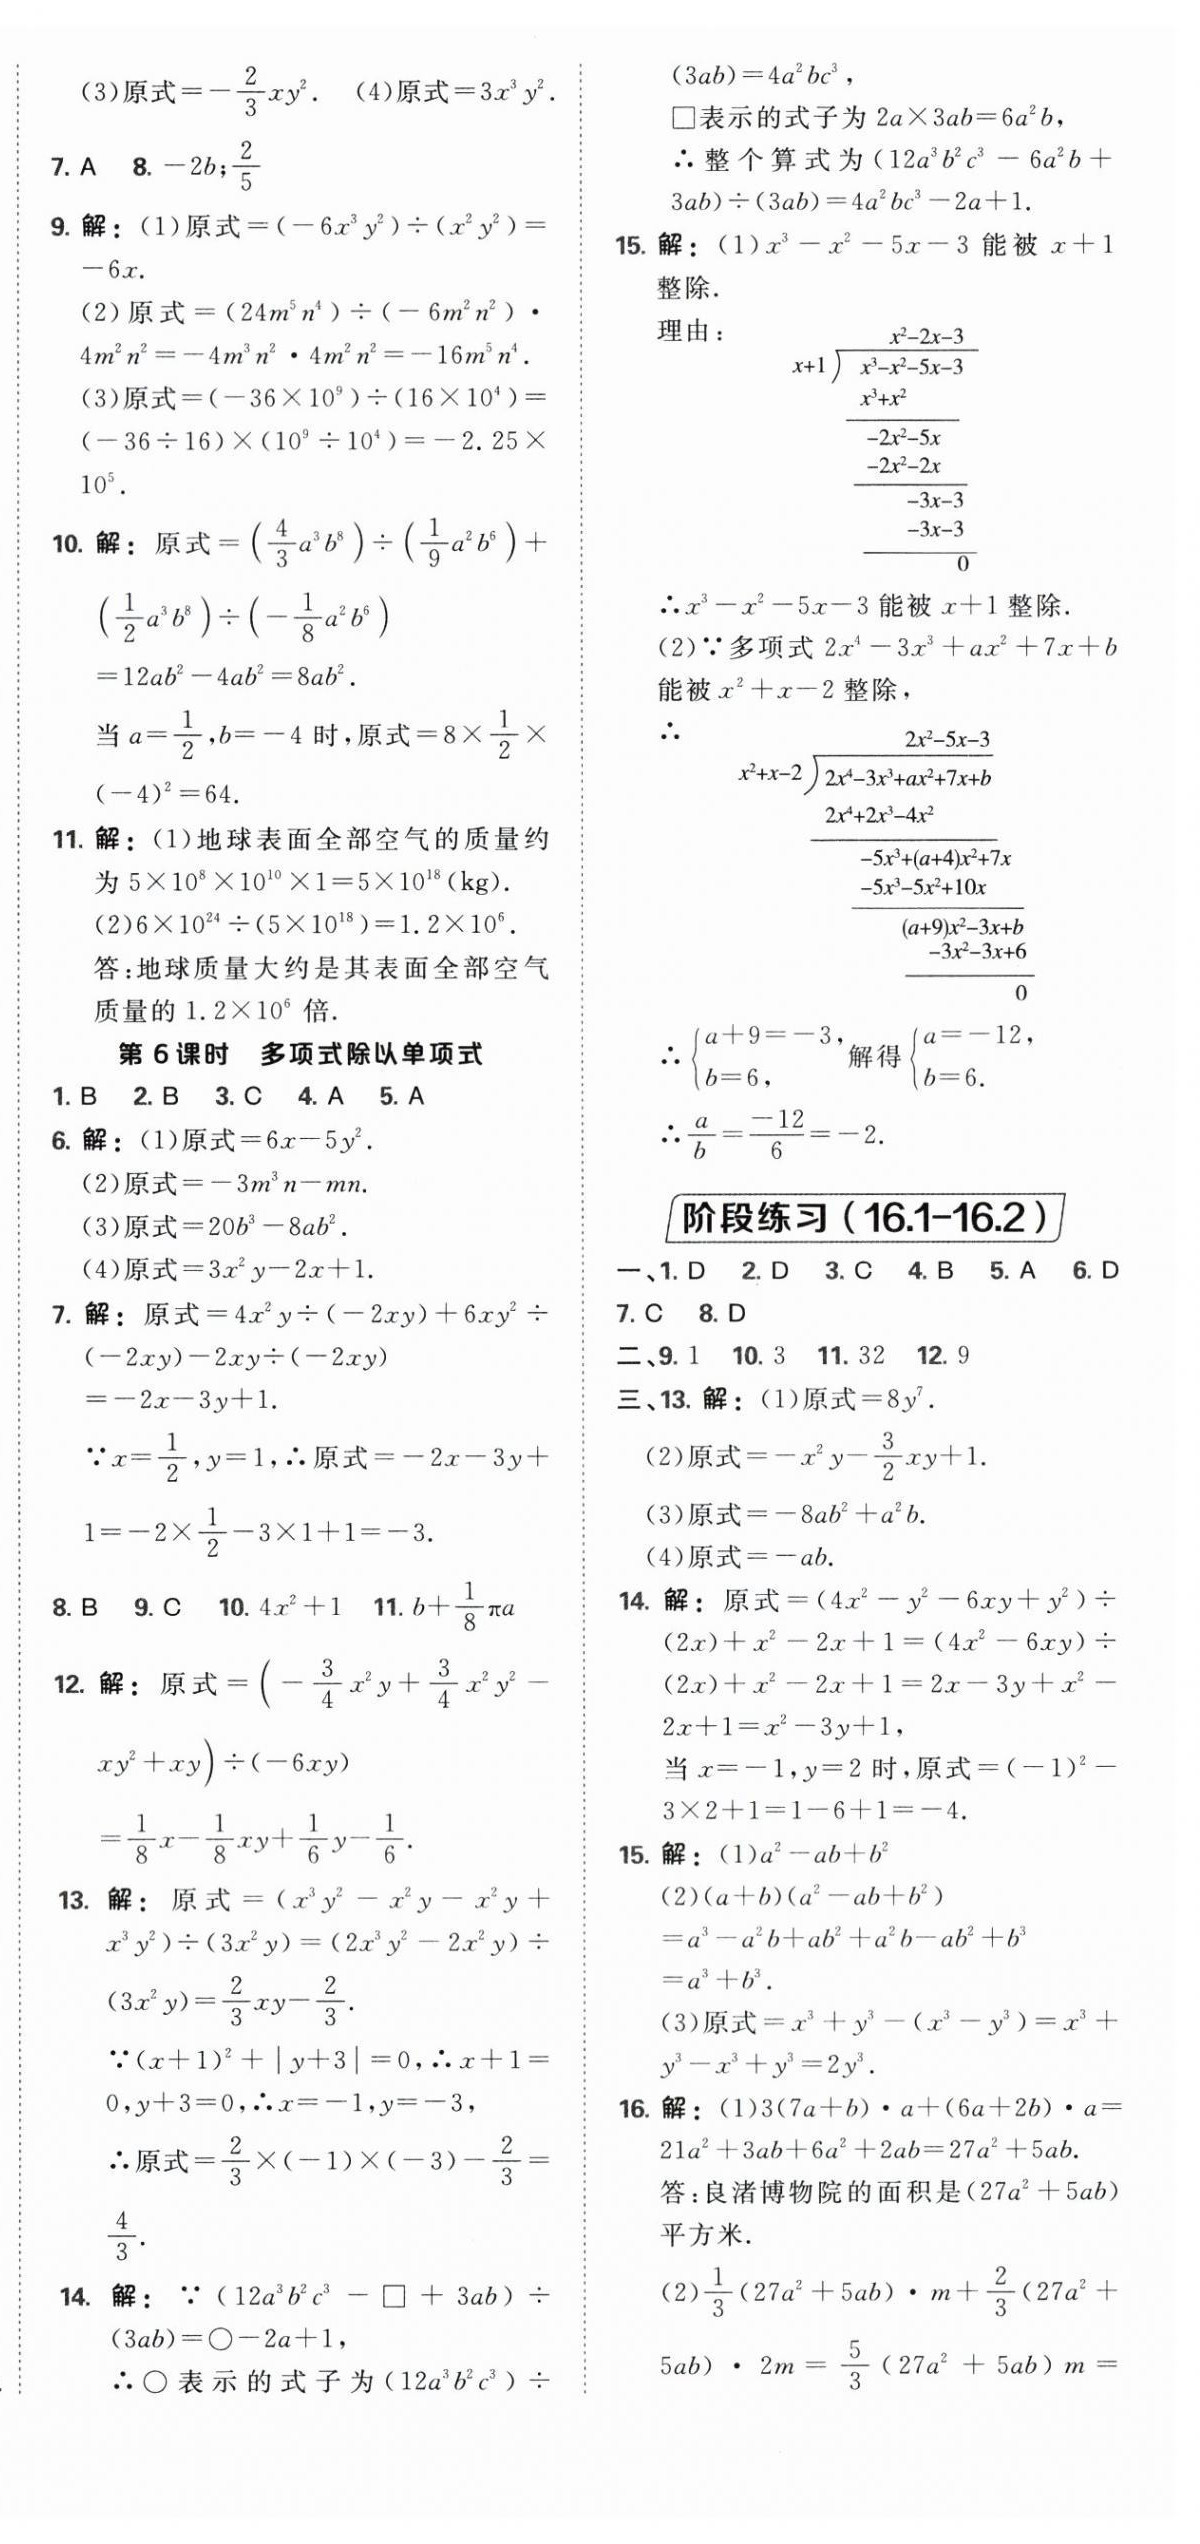 (3)原式=-2/3xy². (4)原式=3x³y².
7. A 8. -2b; 2/5
9. 解:(1)原式=(-6x³y²)÷(x²y²)=
-6x.
(2)原式=(24m⁵n⁴)÷(-6m²n²)·
4m²n²=-4m³n²·4m²n²=-16m⁵n⁴.
(3)原式=(-36×10⁹)÷(16×10⁴)=
(-36÷16)×(10⁹÷10⁴)=-2.25×
10⁵.
10. 解:原式=(4/3a³b⁸)÷(1/9a²b⁶)+
(1/2a³b⁸)÷(-1/8a²b⁶)
=12ab²-4ab²=8ab².
当a=1/2,b=-4时,原式=8×1/2×
(-4)²=64.
11. 解:(1)地球表面全部空气的质量约
为5×10⁸×10¹⁰×1=5×10¹⁸(kg).
(2)6×10²⁴÷(5×10¹⁸)=1.2×10⁶.
答:地球质量大约是其表面全部空气
质量的1.2×10⁶倍.
第6课时 多项式除以单项式
1. B 2. B 3. C 4. A 5. A
6. 解:(1)原式=6x-5y².
(2)原式=-3m³n-mn.
(3)原式=20b³-8ab².
(4)原式=3x²y-2x+1.
7. 解:原式=4x²y÷(-2xy)+6xy²÷
(-2xy)-2xy÷(-2xy)
=-2x-3y+1.
∵x=1/2,y=1,∴原式=-2x-3y+
1=-2×1/2-3×1+1=-3.
8. B 9. C 10. 4x²+1 11. b+1/8πa
12. 解:原式=(-3/4x²y+3/4x²y²-
xy²+xy)÷(-6xy)
=1/8x-1/8xy+1/6y-1/6.
13. 解:原式=(x³y²-x²y-x²y+
x³y²)÷(3x²y)=(2x³y²-2x²y)÷
(3x²y)=2/3xy-2/3.
∵(x+1)²+|y+3|=0,∴x+1=
0,y+3=0,∴x=-1,y=-3,
∴原式=2/3×(-1)×(-3)-2/3=
4/3.
14. 解:∵(12a³b²c³-□+3ab)÷
(3ab)=○-2a+1,
∴○表示的式子为(12a³b²c³)÷
(3ab)=4a²bc³,
□表示的式子为2a×3ab=6a²b,
∴整个算式为(12a³b²c³-6a²b+
3ab)÷(3ab)=4a²bc³-2a+1.
15. 解:(1)x³-x²-5x-3能被x+1
整除.
理由:
x²-2x-3
x+1)x³-x²-5x-3
x³+x²
-2x²-5x
-2x²-2x
-3x-3
-3x-3
0
∴x³-x²-5x-3能被x+1整除.
(2)∵多项式2x⁴-3x³+ax²+7x+b
能被x²+x-2整除,
∴
2x²-5x-3
x²+x-2)2x⁴-3x³+ax²+7x+b
2x⁴+2x³-4x²
-5x³+(a+4)x²+7x
-5x³-5x²+10x
(a+9)x²-3x+b
-3x²-3x+6
0
∴{a+9=-3, b=6, 解得{a=-12, b=6.
∴a/b=-12/6=-2.
阶段练习(16.1-16.2)
一、1. D 2. D 3. C 4. B 5. A 6. D
7. C 8. D
二、9. 1 10. 3 11. 32 12. 9
三、13. 解:(1)原式=8y⁷.
(2)原式=-x²y-3/2xy+1.
(3)原式=-8ab²+a²b.
(4)原式=-ab.
14. 解:原式=(4x²-y²-6xy+y²)÷
(2x)+x²-2x+1=(4x²-6xy)÷
(2x)+x²-2x+1=2x-3y+x²-
2x+1=x²-3y+1,
当x=-1,y=2时,原式=(-1)²-
3×2+1=1-6+1=-4.
15. 解:(1)a²-ab+b²
(2)(a+b)(a²-ab+b²)
=a³-a²b+ab²+a²b-ab²+b³
=a³+b³.
(3)原式=x³+y³-(x³-y³)=x³+
y³-x³+y³=2y³.
16. 解:(1)3(7a+b)·a+(6a+2b)·a=
21a²+3ab+6a²+2ab=27a²+5ab.
答:良渚博物院的面积是(27a²+5ab)
平方米.
(2)1/3(27a²+5ab)·m+2/3(27a²+
5ab)·2m=5/3(27a²+5ab)m=